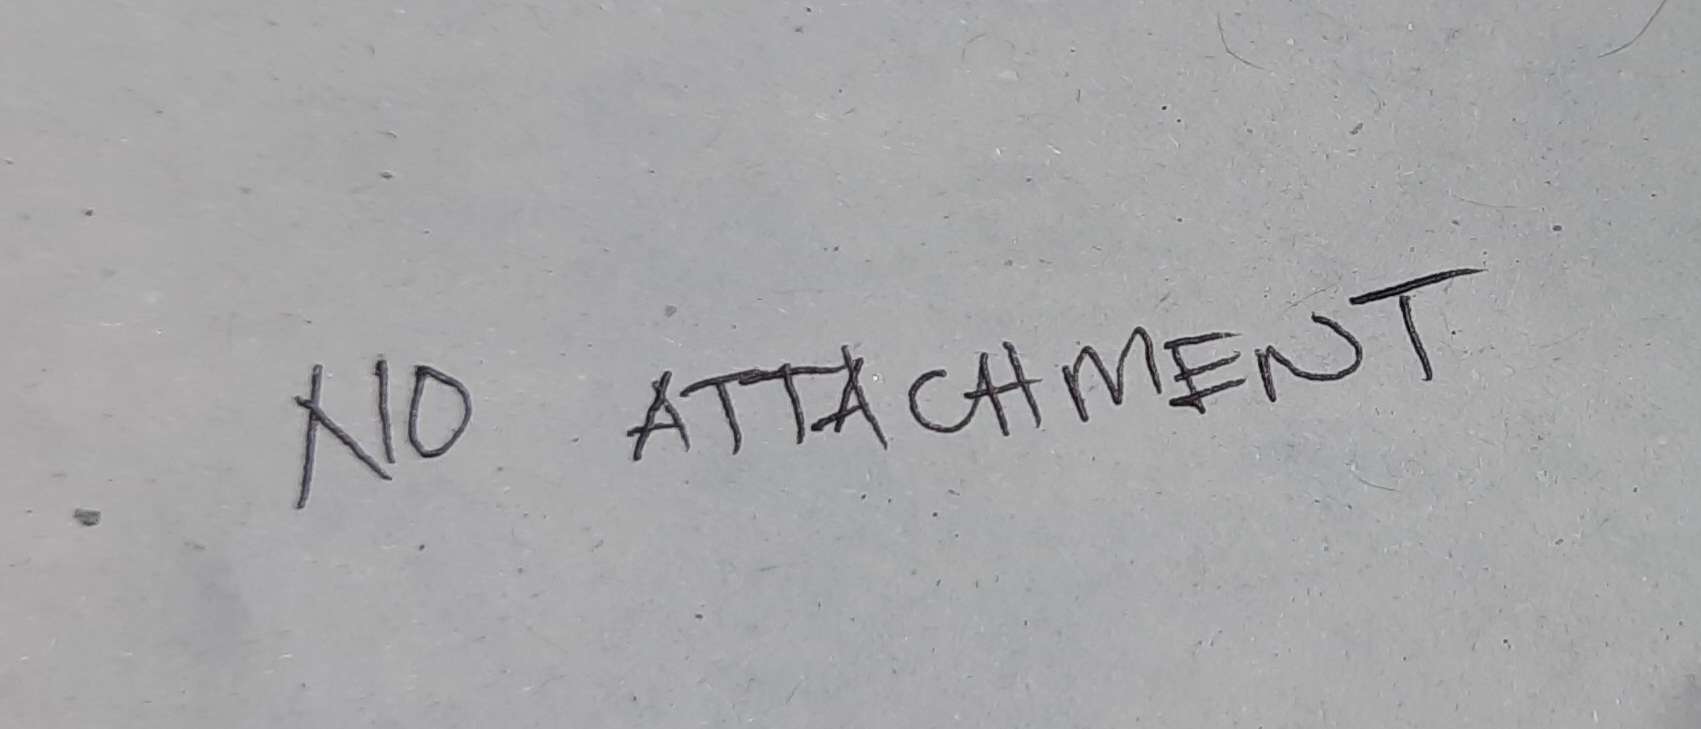 NO ATTACHMENT